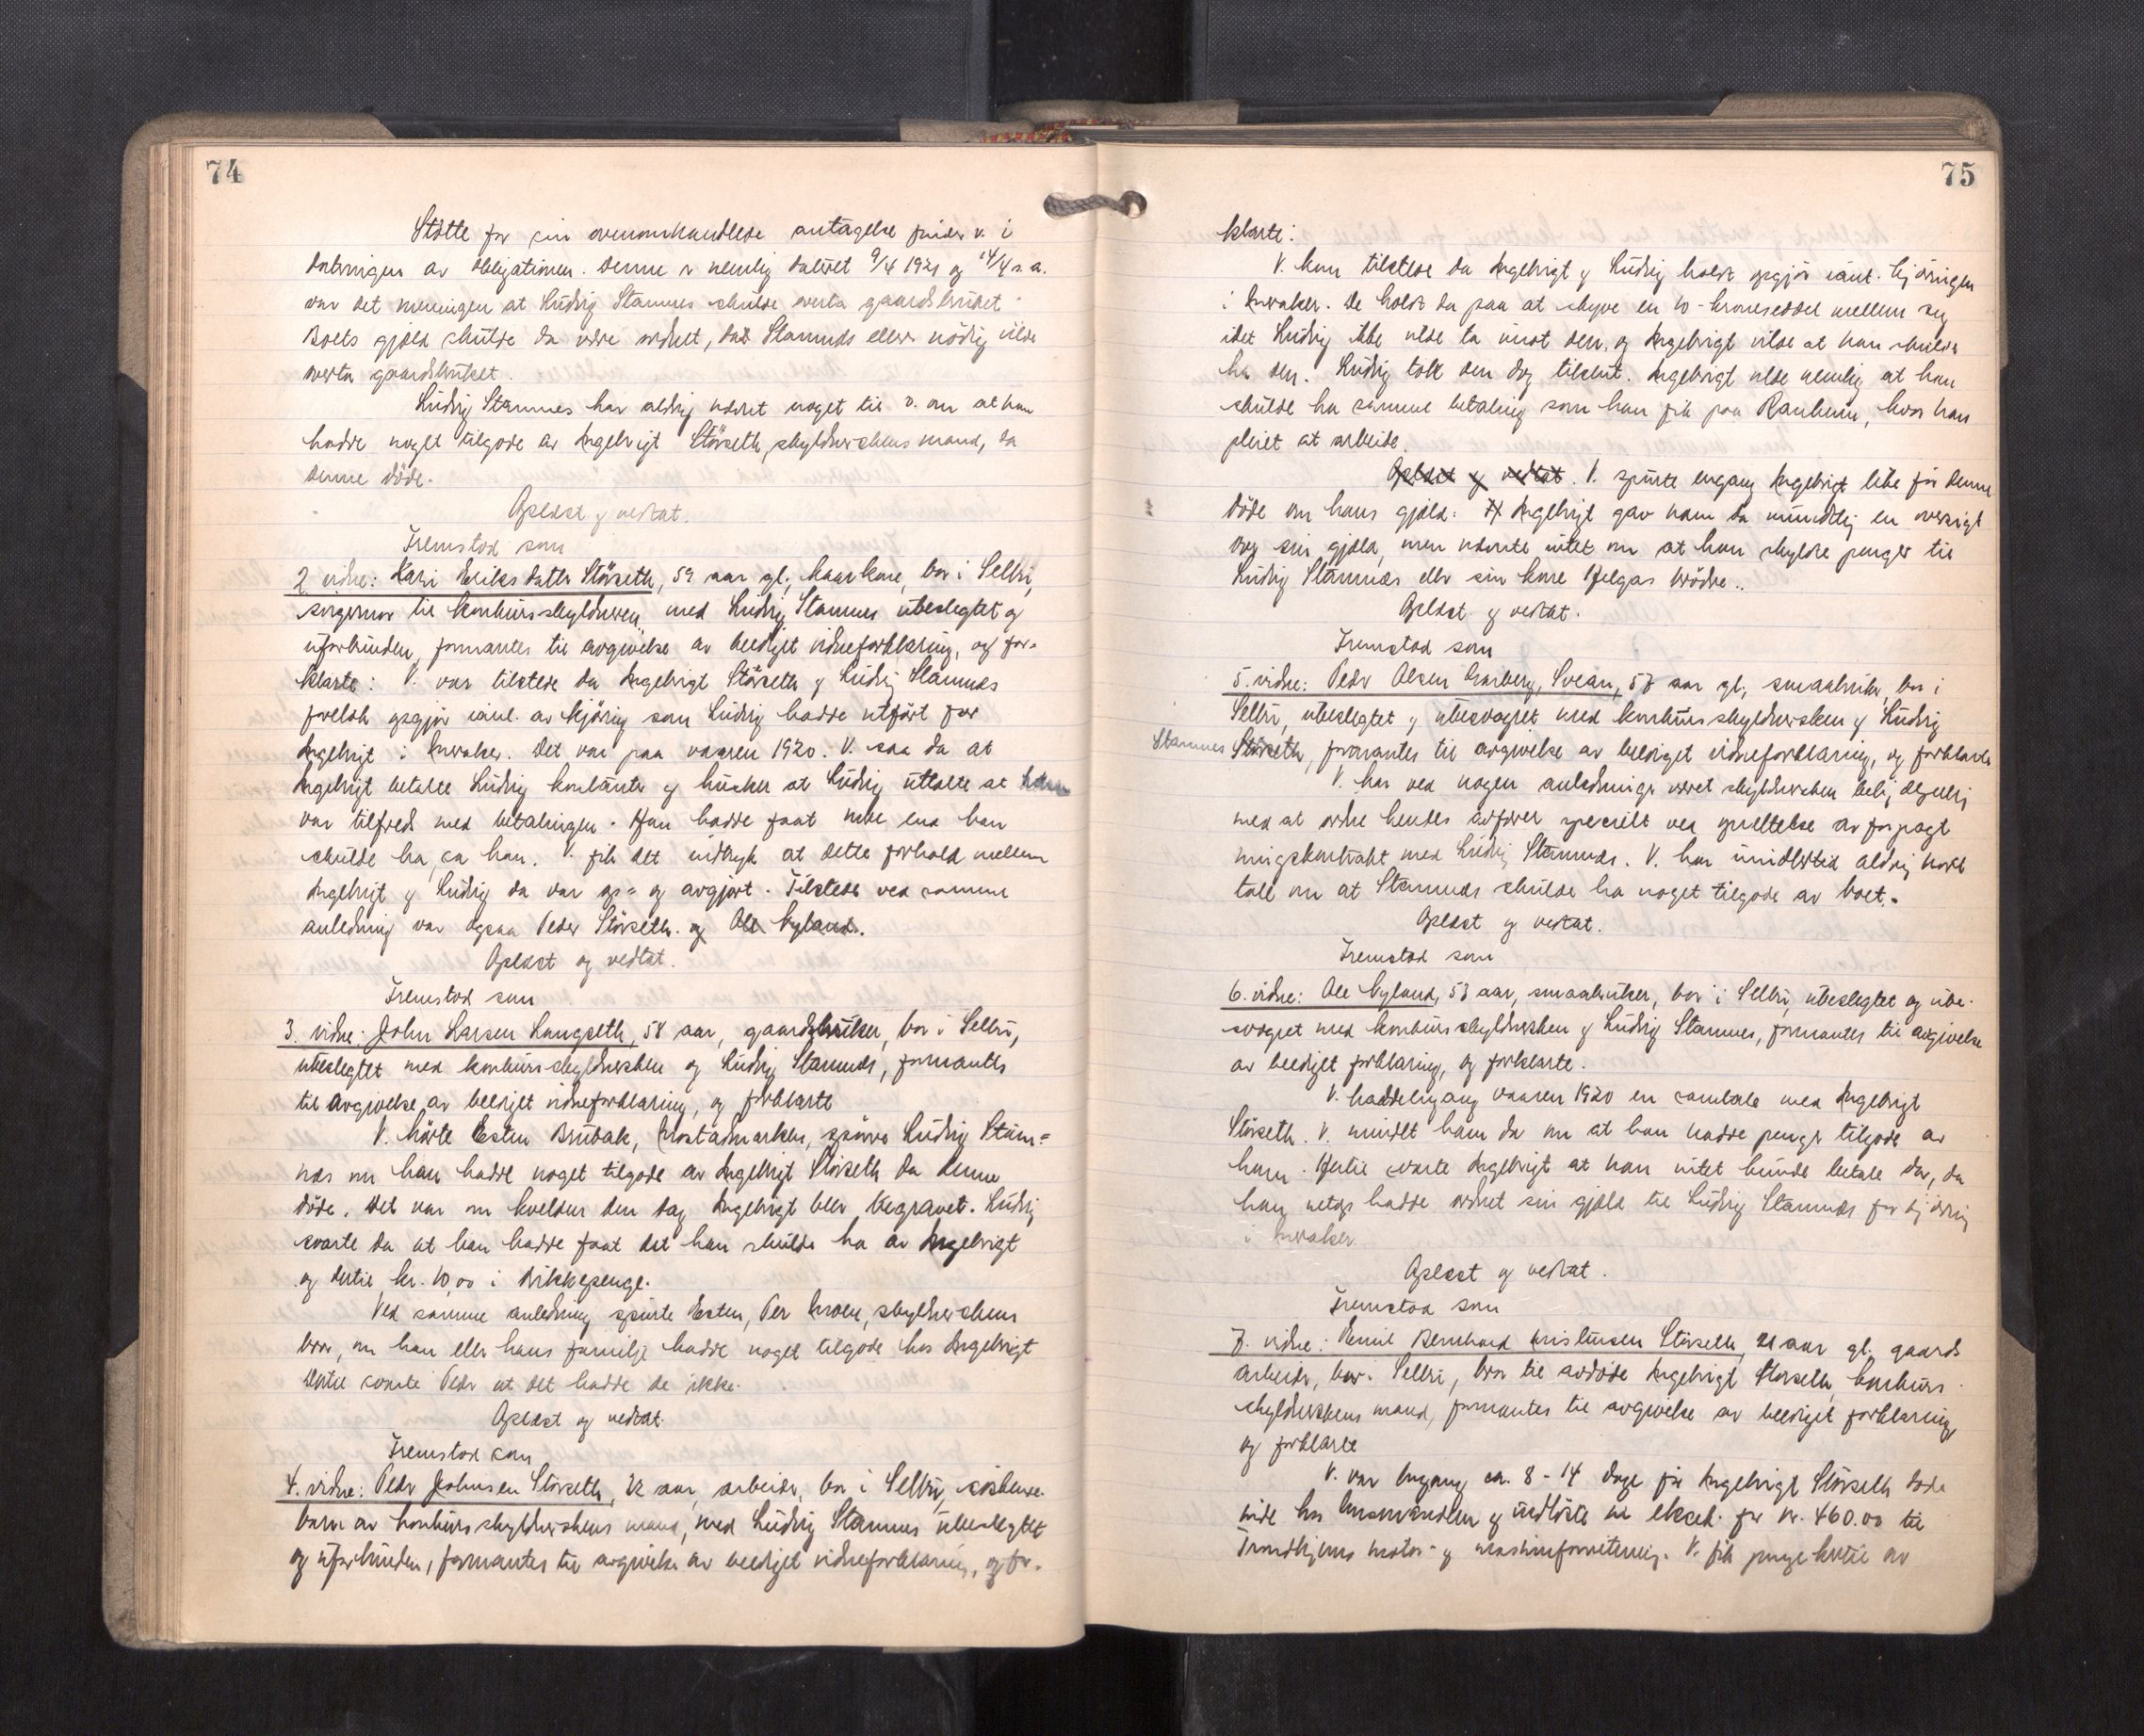 74
Støtte for sin ovenomhandlede antagelse finder v. i
dateringen av obligationen. Denne er nemlig dateret 9/4 1921 og 14/4 s.a.
var det meningen at Ludvig Stamnes skulde overta gaardsbruket.
Boets gjeld skulde da være ordnet, da Stamnes ellers nødig vilde
overta gaardsbruket.
Ludvig Stamnes har aldrig nævnt noget til v. om at han
hadde noget tilgode av Ingebrigt Störseth, skyldnerskens mand, da
denne døde.
Oplæst og vedtat.
Fremstod som
2 vidne: Kari Eriksdatter Störseth, 59 aar gl., kaarkone, bor i Selbu,
svigermor til konkursskyldneren, med Ludvig Stamnes ubeslegtet og
uforbunden, formantes til avgivelse av beediget vidneforklaring, og for-
klarte: V. var tilstede da Ingebrigt Störseth og Ludvig Stamnes
foretok opgjør av kjøring som Ludvig hadde utført for
Ingebrigt i . Det var paa vaaren 1920. V. saa da at
Ingebrigt betalte Ludvig kontanter og husker at Ludvig uttalte at han
var tilfreds med betalingen. Han hadde faat mere end han
skulde ha, sa han. V. fik det indtryk at dette forhold mellem
Ingebrigt og Ludvig da var op- og avgjort. Tilstede ved samme
anledning var ogsaa Peder Störseth. og Ole Nyland.
Oplæst og vedtat.
Fremstod som
3. vidne: John Larsen Langseth, 58 aar, gaardbruker, bor i Selbu,
ubeslegtet med konkursskyldnersken og Ludvig Stamnes, formantes
til avgivelse av beediget vidneforklaring, og forklarte
V. hørte Esten Brubak, Mostadmarken, spørre Ludvig Stam-
nes om han hadde noget tilgode av Ingebrigt Störseth da denne
døde. Det var om kvelden den dag Ingebrigt blev begravet. Ludvig
svarte da at han hadde faat det han skulde ha av Ingebrigt
og dertil kr. 10,00 i drikkepenge.
Ved samme anledning spurte Esten, Per Moen, skyldnerskens
bror, om han eller hans familje hadde noget tilgode hos Ingebrigt
Hertil svarte Peder at det hadde de ikke.
Oplæst og vedtat.
Fremstod som
4. vidne: Peder Johnsen Störseth, 22 aar, arbeider, bor i Selbu, søskende-
barn av konkursskyldnerskens mand, med Ludvig Stamnes ubeslegtet
og uforbunden, formantes til avgivelse av beediget vidneforklaring, og for-
75
klarte:
V. kom tilstede da Ingebrigt og Ludvig holdt opgjør . kjøringen
i . De holdt da paa at skyve en 10-kroneseddel mellem sig
idet Ludvig ikke vilde ta imot den, og Ingebrigt vilde at han skulde
ha den. Ludvig tok den dog tilslut. Ingebrigt vilde nemlig at han
skulde ha samme betaling som han fik paa Ranheim, hvor han
pleiet at arbeide.
Oplæst og vedtat. V. spurte engang Ingebrigt like før denne
døde om hans gjeld. Ingebrigt gav ham da mundtlig en oversigt
over sin gjeld, men nævnte intet om at han skyldte penger til
Ludvig Stamnes eller sin kone Helgas brødre.
Oplæst og vedtat.
Fremstod som
5. vidne: Peder Olsen Garberg, Svean, 57 aar gl., smaabruker, bor i
Selbu, ubeslegtet og ubesvogret med konkursskyldnersken og Ludvig
Stamnes Störseth, formantes til avgivelse av beediget vidneforklaring, og forklarte
V. har ved nogen anledninger været skyldnersken behjelpelig
med at ordne hendes affærer specielt ved oprettelse av forpagt
ningskontrakt med Ludvig Stamnes. V. har imidlertid aldrig hørt
tale om at Stamnes skulde ha noget tilgode av boet.
Oplæst og vedtat.
Fremstod som
6. vidne: Ole Nyland, 53 aar, smaabruker, bor i Selbu, ubeslegtet og ube-
svogret med konkursskyldnersken og Ludvig Stamnes, formantes til avgivelse
av beediget forklaring, og forklarte.
V. hadde engang vaaren 1920 en samtale med Ingebrigt
Störseth. V. mindet ham da om at han hadde penger tilgode av
ham. Hertil svarte Ingebrigt at han intet kunde betale da, da
han netop hadde ordnet sin gjeld til Ludvig Stamnes for kjøring
i .
Oplæst og vedtat.
Fremstod som
7. vidne: Emil Bernhard Kristensen Störseth, 21 aar gl. gaards
arbeider, bor i Selbu, bror til avdøde Ingebrigt Störseth, konkurs
skyldnerskens mand, formantes til avgivelse av beediget forklaring
og forklarte
V. var engang ca. 8 - 14 dage før Ingebrigt Störseth døde
inde hos og indløste en for kr. 460.00 til
Trondhjems motor- og maskinforretning. V. fik penge hertil av